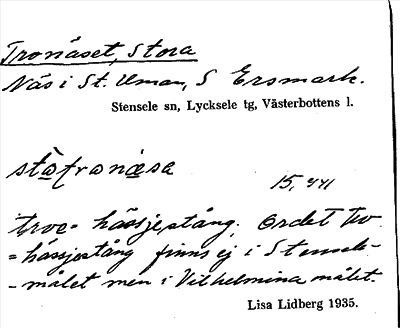 Tronäset, Stora
Näs i St. Uman, S Ersmark.
Stensele sn, Lycksele tg, Västerbottens l.
15, 441
troe = hässjestång. Ordet tro
= hässjestång finns ej i Stensele-
-målet men i Vilhelmina målet.
Lisa Lidberg 1935.